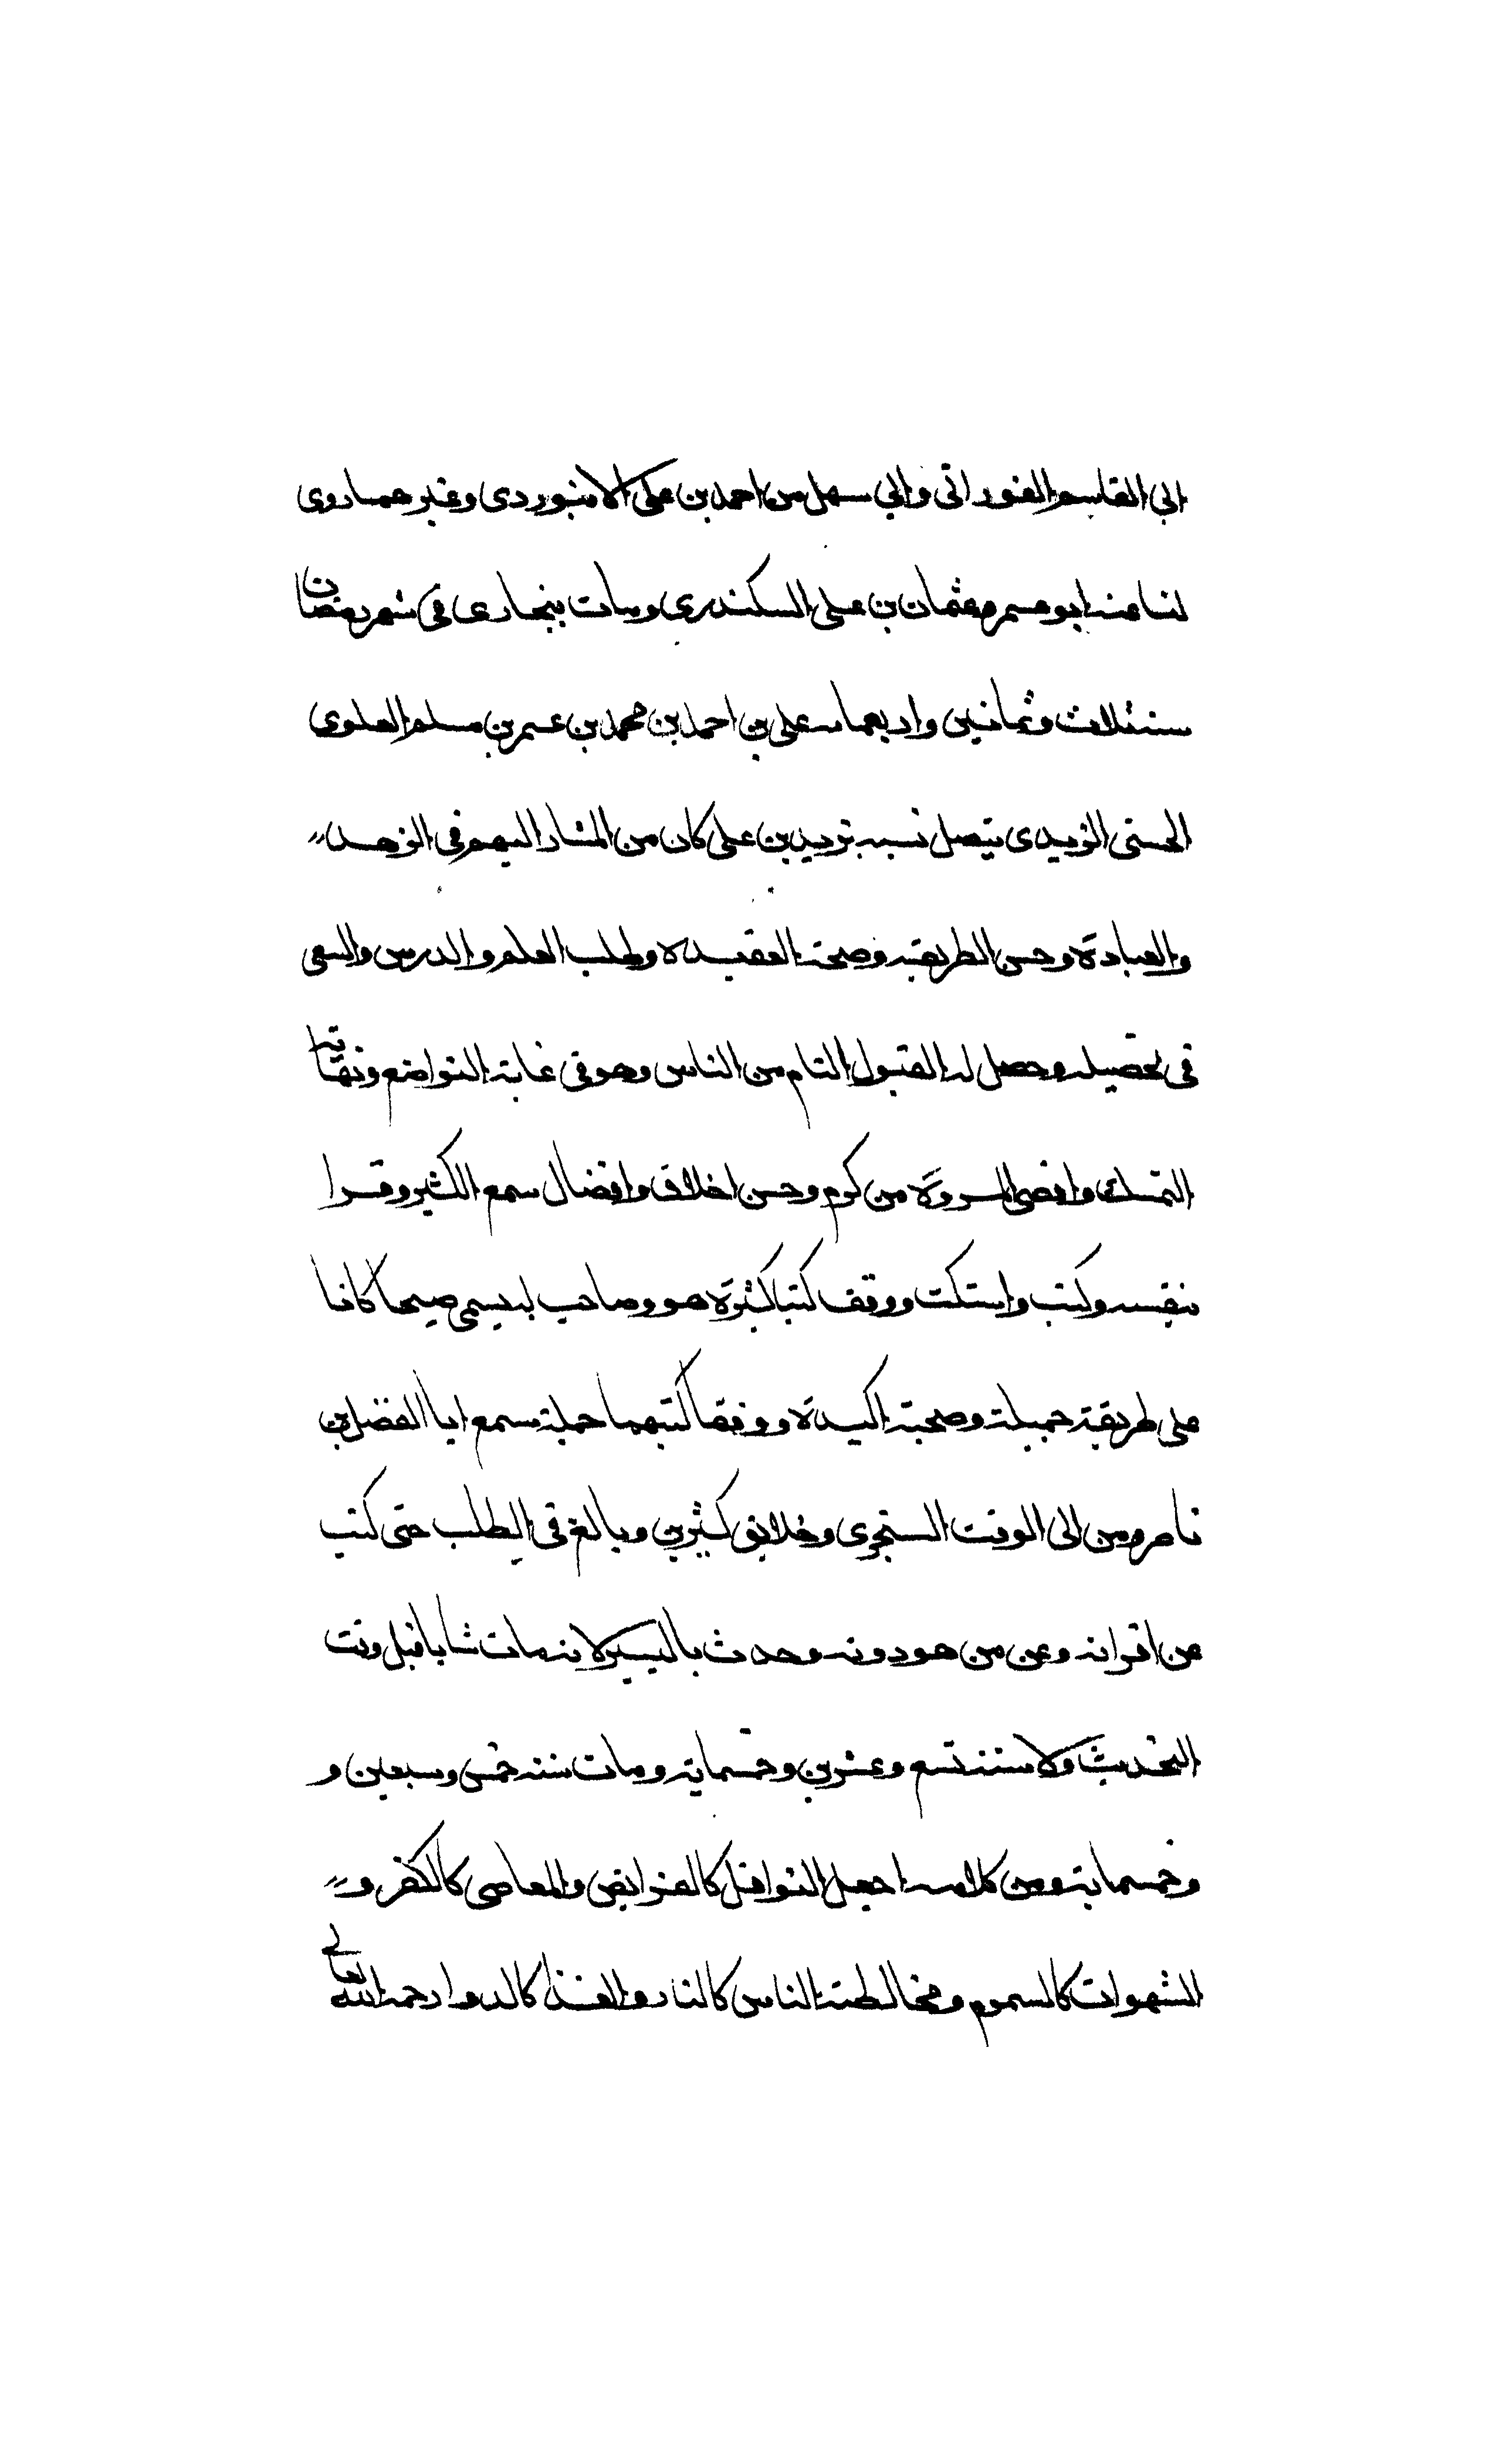 ابي القاسم الفوراني وابي سهل من احمد بن على الابيوردى وغيرهما روى
لنا عنه ابو عمر وعثمان بن على السكندرى ومات ببخارى فى شهر رمضان
سنة ثلاث وثمانين واربعماىه على بن احمد بن محمد بن عمر بن مسلم العلوى
الحسنى الزيدى يتصل نسبه بزيد بن على كان من المشار اليهم فى الزهد
والعبادة وحسن الطريقه وصحة العقيدة وطلب العلم والدرس والسعى
فى تحصيله وحصل له القبول التام من الناس وهو فى غاية التواضع ونهاية
التمسك واقصى المروة من كرم وحسن اخلاق وافضال سمع الكثير وقرا
بنفسه وكتب واستكتب ووقف كتبا كثيرة هو وصاحب له يسمى صبيحا كانا
على طريقة جميلة وصحبة اكيدة ووقفا كتبهما جملة سمع ابا الفضل بن
ناصر ومن الى الوقت السنجرى وخلايق كثيرين وبالغ فى الطلب حتى كتب
عن اقرانه وعن من هو دونه وحدث باليسير لانه مات شابا قبل وقت
التحديث ولا سنة تسع وعشرين وخمسماية ومات سنة خمس وسبعين و
وخمسماية ومن كلامه اجعل النوافل كالفرايض والمعاصى كالكفر و
الشهوات كالسموم ومخالطة الناس كالنار والغذا كالدوا رحمه الله تعالى